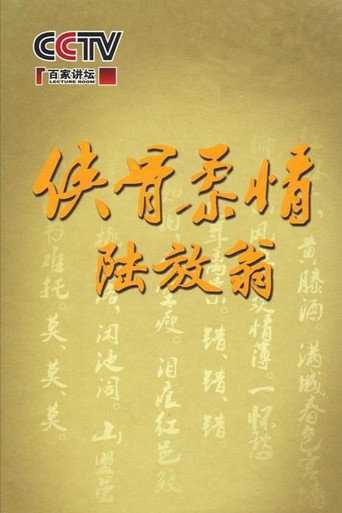 CCTV
百家讲坛
LECTURE ROOM
侠骨柔情
陆放翁
黄縢酒。满城春色宫
情薄。一怀愁
错、错、错。
瘦。泪痕红浥
闲池阁。山盟
难托。莫、莫、莫。